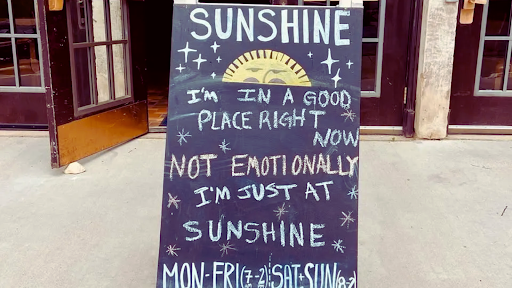 SUNSHINE
I'M IN A GOOD
PLACE RIGHT
NOW
NOT EMOTIONALLY
I'M JUST AT
SUNSHINE
MON-FRI(7-2) SAT+SUN(8-2)